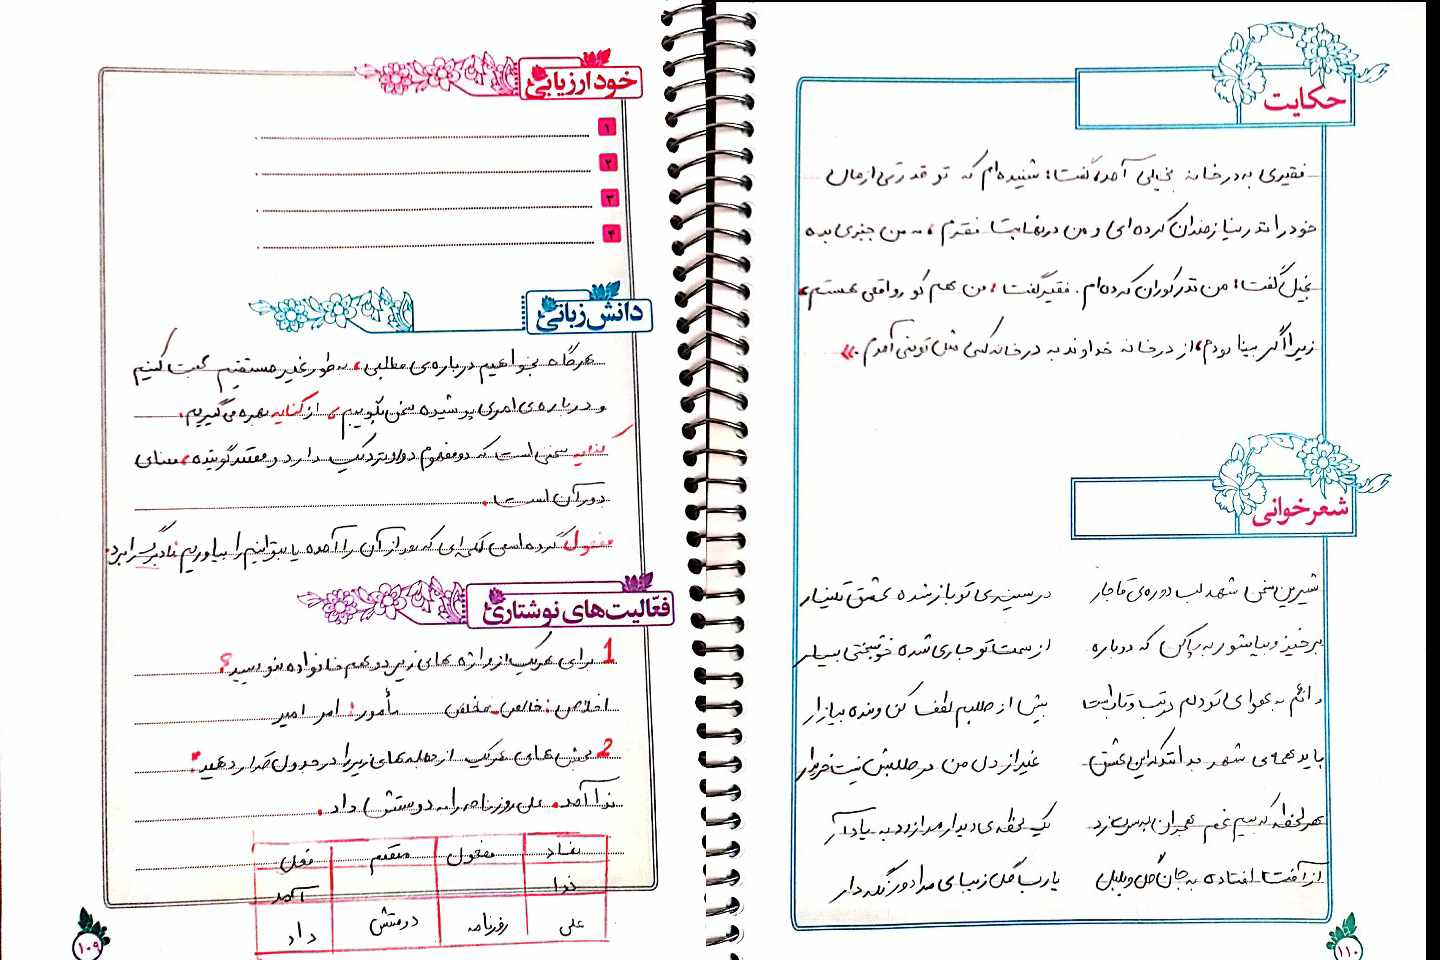 حکایت
فقیری به در خانه بخیلی آمد، گفت: شنیده‌ام که تو قدری از مال
خود را نذر نیازمندان کرده‌ای و من در نهایت فقرم، به من چیزی بده
بخیل گفت: من نذر کوران کرده‌ام. فقیر گفت: من هم کور واقعی هستم،
زیرا اگر بینا بودم، از در خانه خداوند به در خانه کسی مثل تو نمی آمدم.»
شعرخوانی
شیرین سخن شهد لب دوره‌ی قاجار در سینه‌ی تو باز شده عشق تلنبار
برخیز و بیا شور به پا کن که دوباره از سمت تو جاری شده خوشبختی بسیار
دائم به هوای تو دلم در تب و تاب است بیش از طلبم لطف کن و وعده بیازار
باید همه‌ی شهر بدانند که این عشق غیر از دل من در طلبش نیست خریدار
هر لحظه که بیم غم هجران به سرت زد یک لحظه‌ی دیدار مرا زود به یاد آر
از آفت افتاده به جان گل و بلبل یارب گل زیبای مرا دور نگه دار
۱۱۰
خودارزیابی
۱
۲
۳
۴
دانش زبانی
هرگاه بخواهیم درباره‌ی مطلبی، به طور غیر مستقیم صحبت کنیم
و درباره‌ی امری پوشیده سخن بگوییم، از کنایه بهره می‌گیریم.
کنایه سخنی است که دو مفهوم دور و نزدیک دارد و مقصد گوینده، معنای
دور آن است.
مفعول گروه اسمی که بعد از آن را آمده یا بتوانیم را بیاوریم
فعّالیت‌های نوشتاری
1 برای هریک از واژه های زیر دو هم خانواده بنویسید؟
اخلاص: خالص_مخلص مأمور: امر امیر
2 بخش های هریک از جمله های زیر را در جدول قرار دهید:
ندا آمد. علی روزنامه را به دوستش داد.
نهاد مفعول متمم فعل
ندا آمد
علی روزنامه دوستش داد
۱۰۹